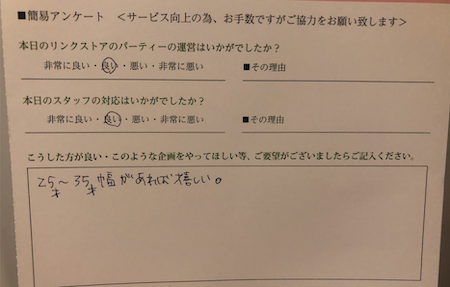 ■簡易アンケート ＜サービス向上の為、お手数ですがご協力をお願い致します＞
本日のリンクストアのパーティーの運営はいかがでしたか？
非常に良い・良い・悪い・非常に悪い ■その理由
本日のスタッフの対応はいかがでしたか？
非常に良い・良い・悪い・非常に悪い ■その理由
こうした方が良い・このような企画をやってほしい等、ご要望がございましたらご記入ください。
25才〜35才幅があれば嬉しい。